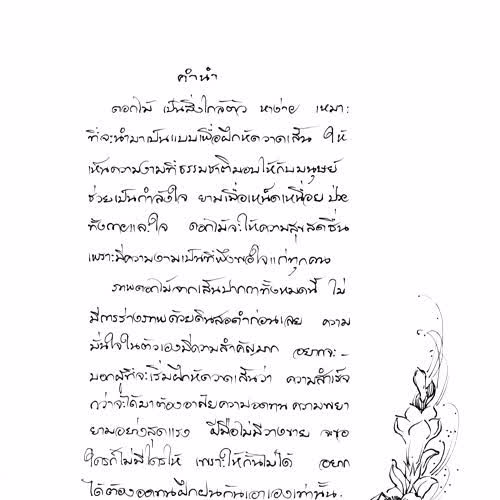 คำนำ
ดอกไม้ เป็นสิ่งใกล้ตัว หาง่าย เหมาะ
ที่จะนำมาเป็นแบบเพื่อฝึกหัดวาดเส้น ให้
เห็นความงามที่ธรรมชาติมอบให้กับมนุษย์
ช่วยเป็นกำลังใจ ยามเมื่อเหน็ดเหนื่อย ป่วย
ทั้งกายและใจ ดอกไม้จะให้ความสุขสดชื่น
เพราะมีความงามเป็นที่พึงพอใจแก่ทุกคน
ภาพดอกไม้จากเส้นปากกาทั้งหมดนี้ ไม่
มีการร่างภาพด้วยดินสอดำก่อนเลย ความ
มั่นใจในตัวเองมีความสำคัญมาก อยากจะ
บอกผู้ที่จะเริ่มฝึกหัดวาดเส้นว่า ความสำเร็จ
กว่าจะได้มาต้องอาศัยความอดทน ความพยา
ยามอย่างสุดแรง ฝีมือไม่มีวางขาย จะขอ
ใครก็ไม่มีใครให้ เพราะให้กันไม่ได้ อยาก
ได้ต้องอดทนฝึกฝนกันเอาเองเท่านั้น